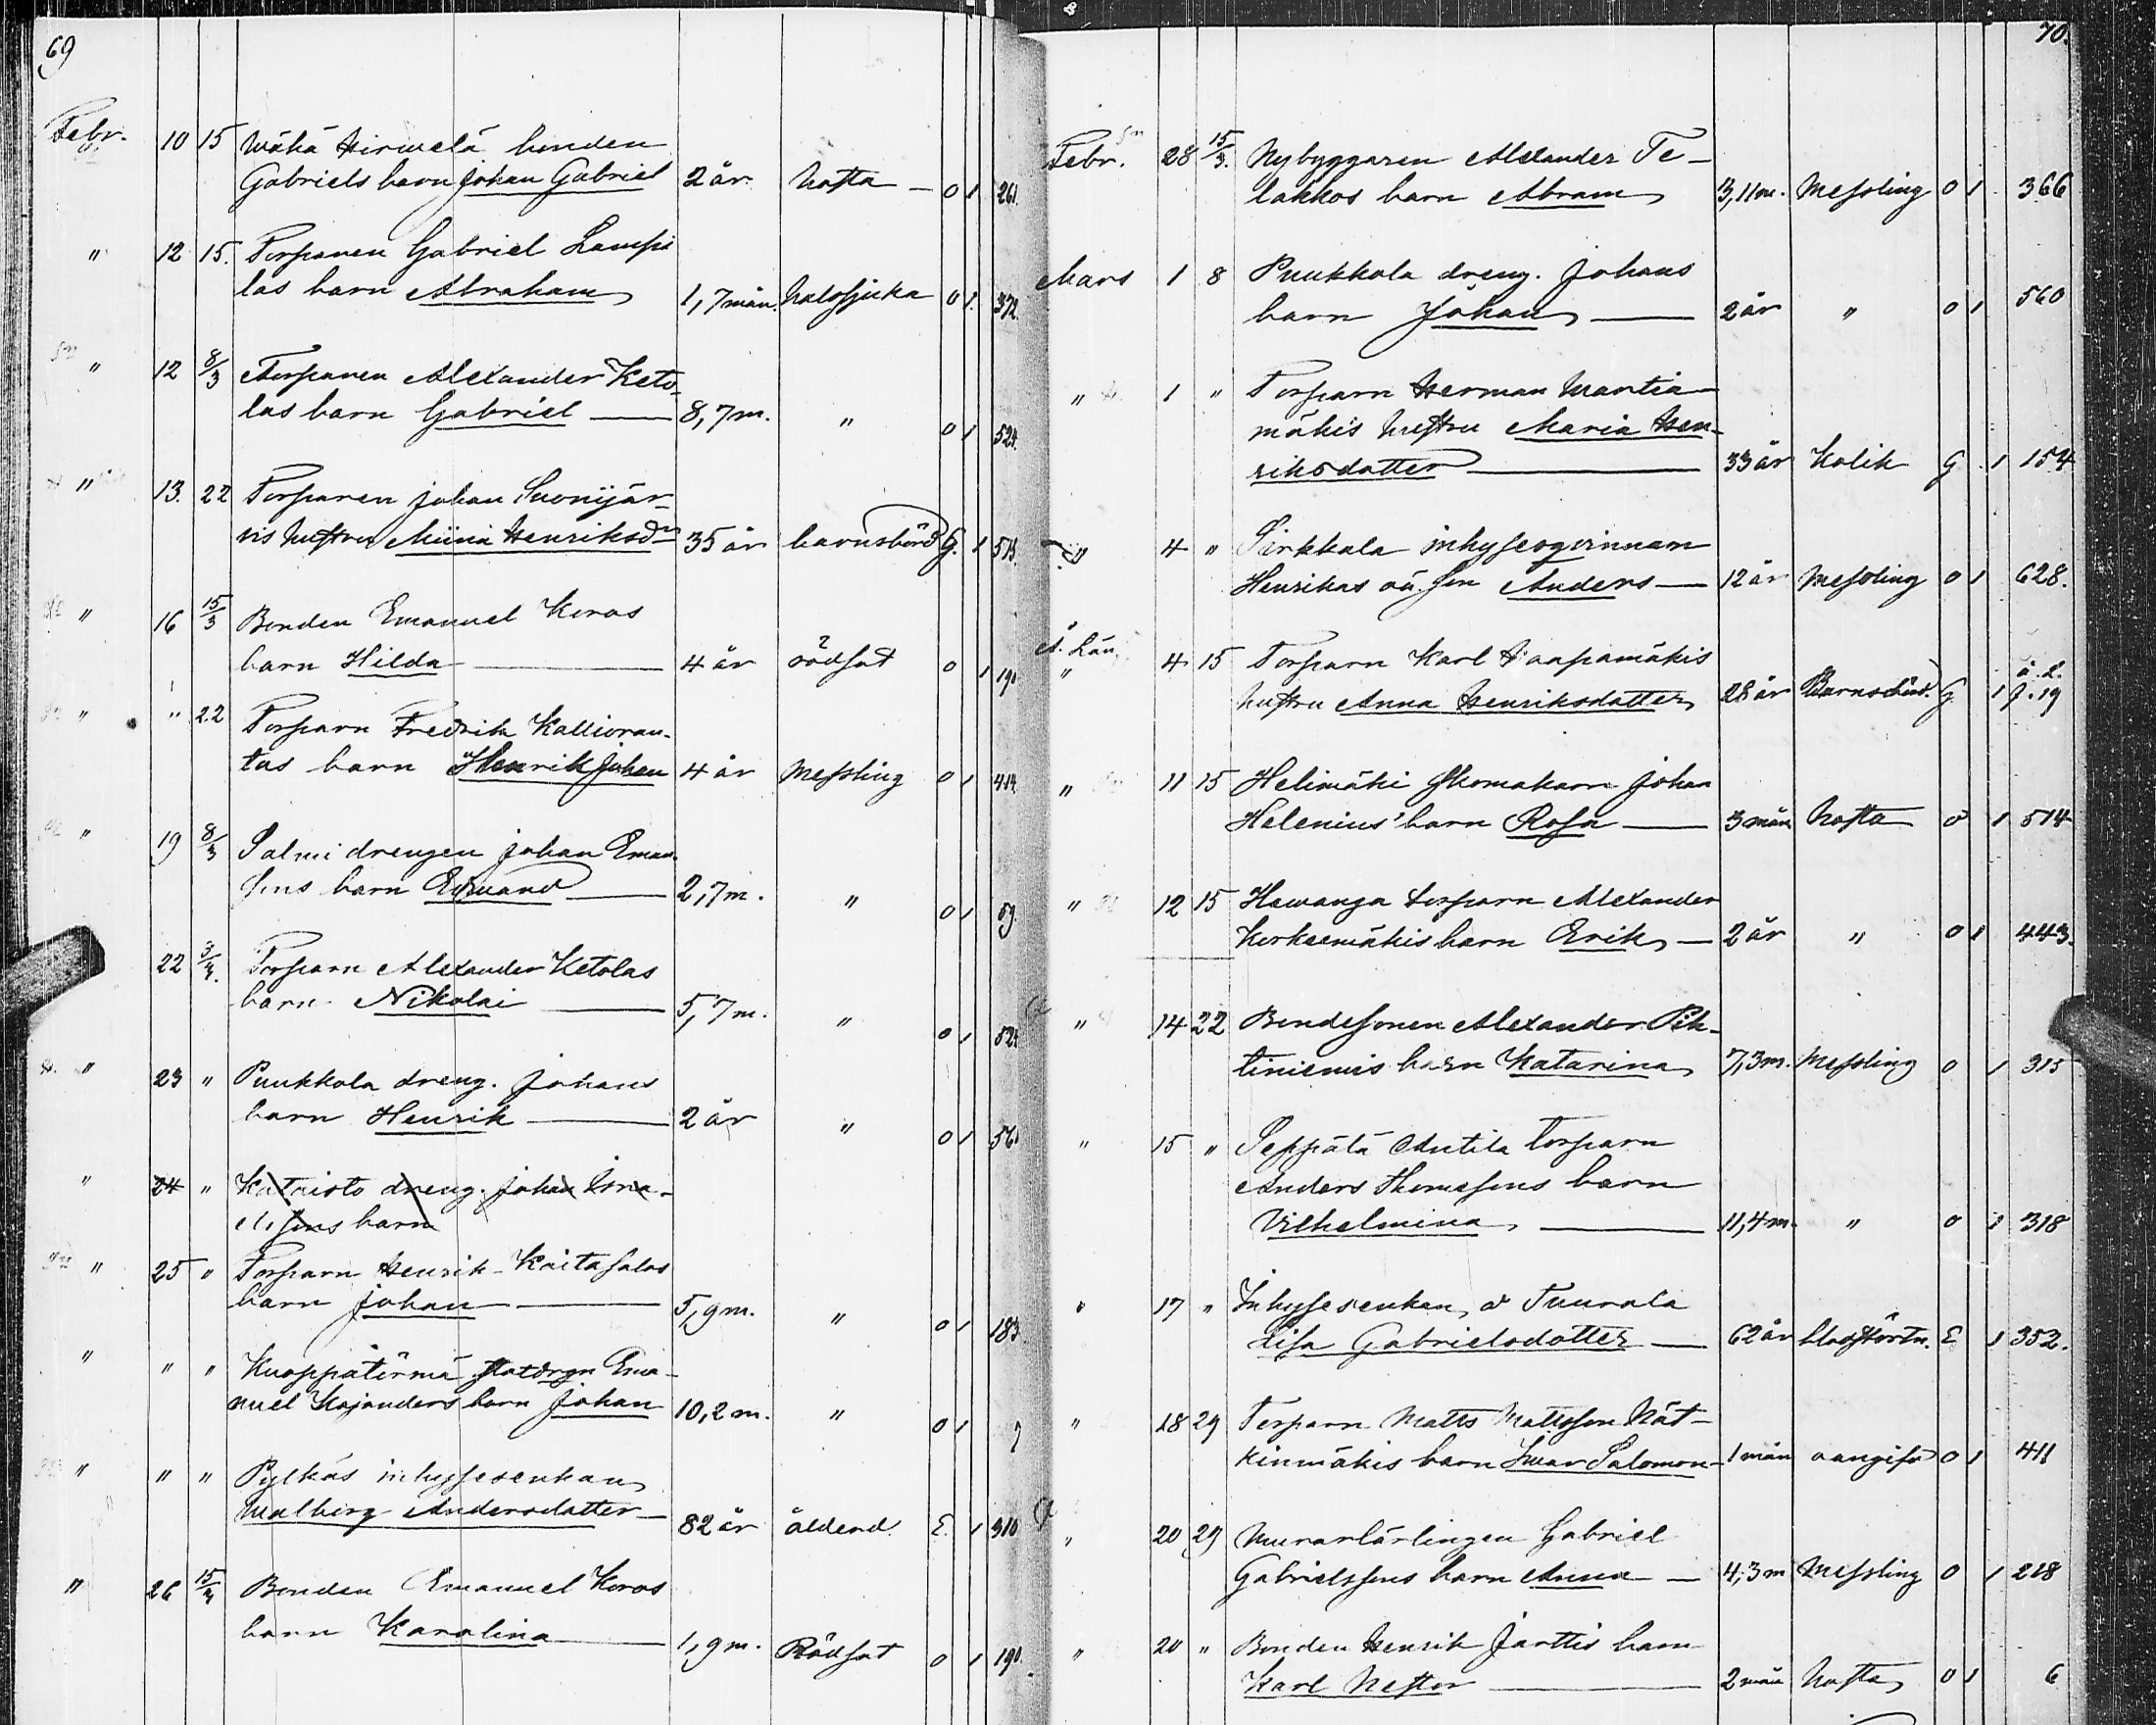 69
Febr. 10 15 Wähä Hirwelä bonden
Gabriels barn Johan Gabriel 2 år hosta — o 1 261.
" 12 15. Torparen Gabriel Lampi
las barn Abraham 1,7 mån. halssjuka o 1. 372.
" 12 8/3 Torparen Alexander Keto-
las barn Gabriel — 8,7 m. " o 1 524.
" 13. 22 Torparen Johan Suonijär-
vis hustru Miina Henriksdr 35 år barnsbörd G. 1 513.
" 16 15/3 Bonden Emanuel Koros
barn Hilda — 4 år rödsot o 1 190
" " 22 Torparn Fredrik Kallioran-
tas barn Henrik Johan 4 år Messling o 1 414.
" 19 8/3 Salmi drengen Johan Eman.
sons barn Edvard — 2,7 m. " o 1 59.
22 3/4. Torparn Alexander Ketolas
barn Nikolai — 5,7 m. " o 1 524
" 23 " Puukkola dreng. Johans
barn Henrik — 2 år " o 1 560
" 24 " Kataisto dreng. Johan Isra-
elssons barn
" 25 " Torparn Henrik Kaitasalos
barn Johan — 5,9 m. " o 1 183.
" " " Kuoppatörmä statdrgn Ema-
nuel Kajanders barn Johan 10,2 m. " o 1 7
" " " Pylkäs inhysesenkan
Walborg Andersdotter — 82 år ålderd. E. 1 310
" 26 15/3 Bonden Emanuel Koros
barn Karolina — 1,9 m. Rödsot o 1 190.
70.
Febr. 28 15/3. Nybyggaren Alexander Te-
lakkos barn Abram 3,11 m. Messling o 1 366
Mars 1 8 Puukkola dreng. Johans
barn Johan — 2 år " o 1 560
" 1 " Torparn Herman Mantia-
mäkis hustru Maria Hen-
riksdotter — 33 år Kolik G 1 154
" 4 " Sirkkala inhysesqvinnan
Henrikas oä. son Anders — 12 år Messling o 1 628.
" 4 15 Torparn Karl Haapamäkis
hustru Anna Henriksdotter 28 år Barnsbörd. G 1 f. 19
" 11 15 Helimäki skomakarn Johan
Helenius' barn Rosa — 3 mån hosta o 1 514
" 12 15 Hawanga torparn Alexander
Korkeemäkis barn Erik — 2 år " o 1 443.
" 14 22 Bondesonen Alexander Pih-
tiniemis barn Katarina 7,3 m. Messling o 1 315
" 15 " Seppälä Antila torparn
Anders Thomasons barn
Vilhelmina, — 11,4 m. " o 1 318
" 17 " Inhysesenkan å Tuurala
Lisa Gabrielsdotter — 62 år blodstörtn. E 1 352.
" 18 29 Torparn Matts Mattsson Nät-
kinmäkis barn Iwar Salomon 1 mån oangifn o 1 411
" 20 29 Murarlärlingen Gabriel
Gabrielssons barn Anna — 4,3 m Messling o 1 218
" 20 " Bonden Henrik Jarttis barn
Karl Nestor — 2 mån hosta o 1 6